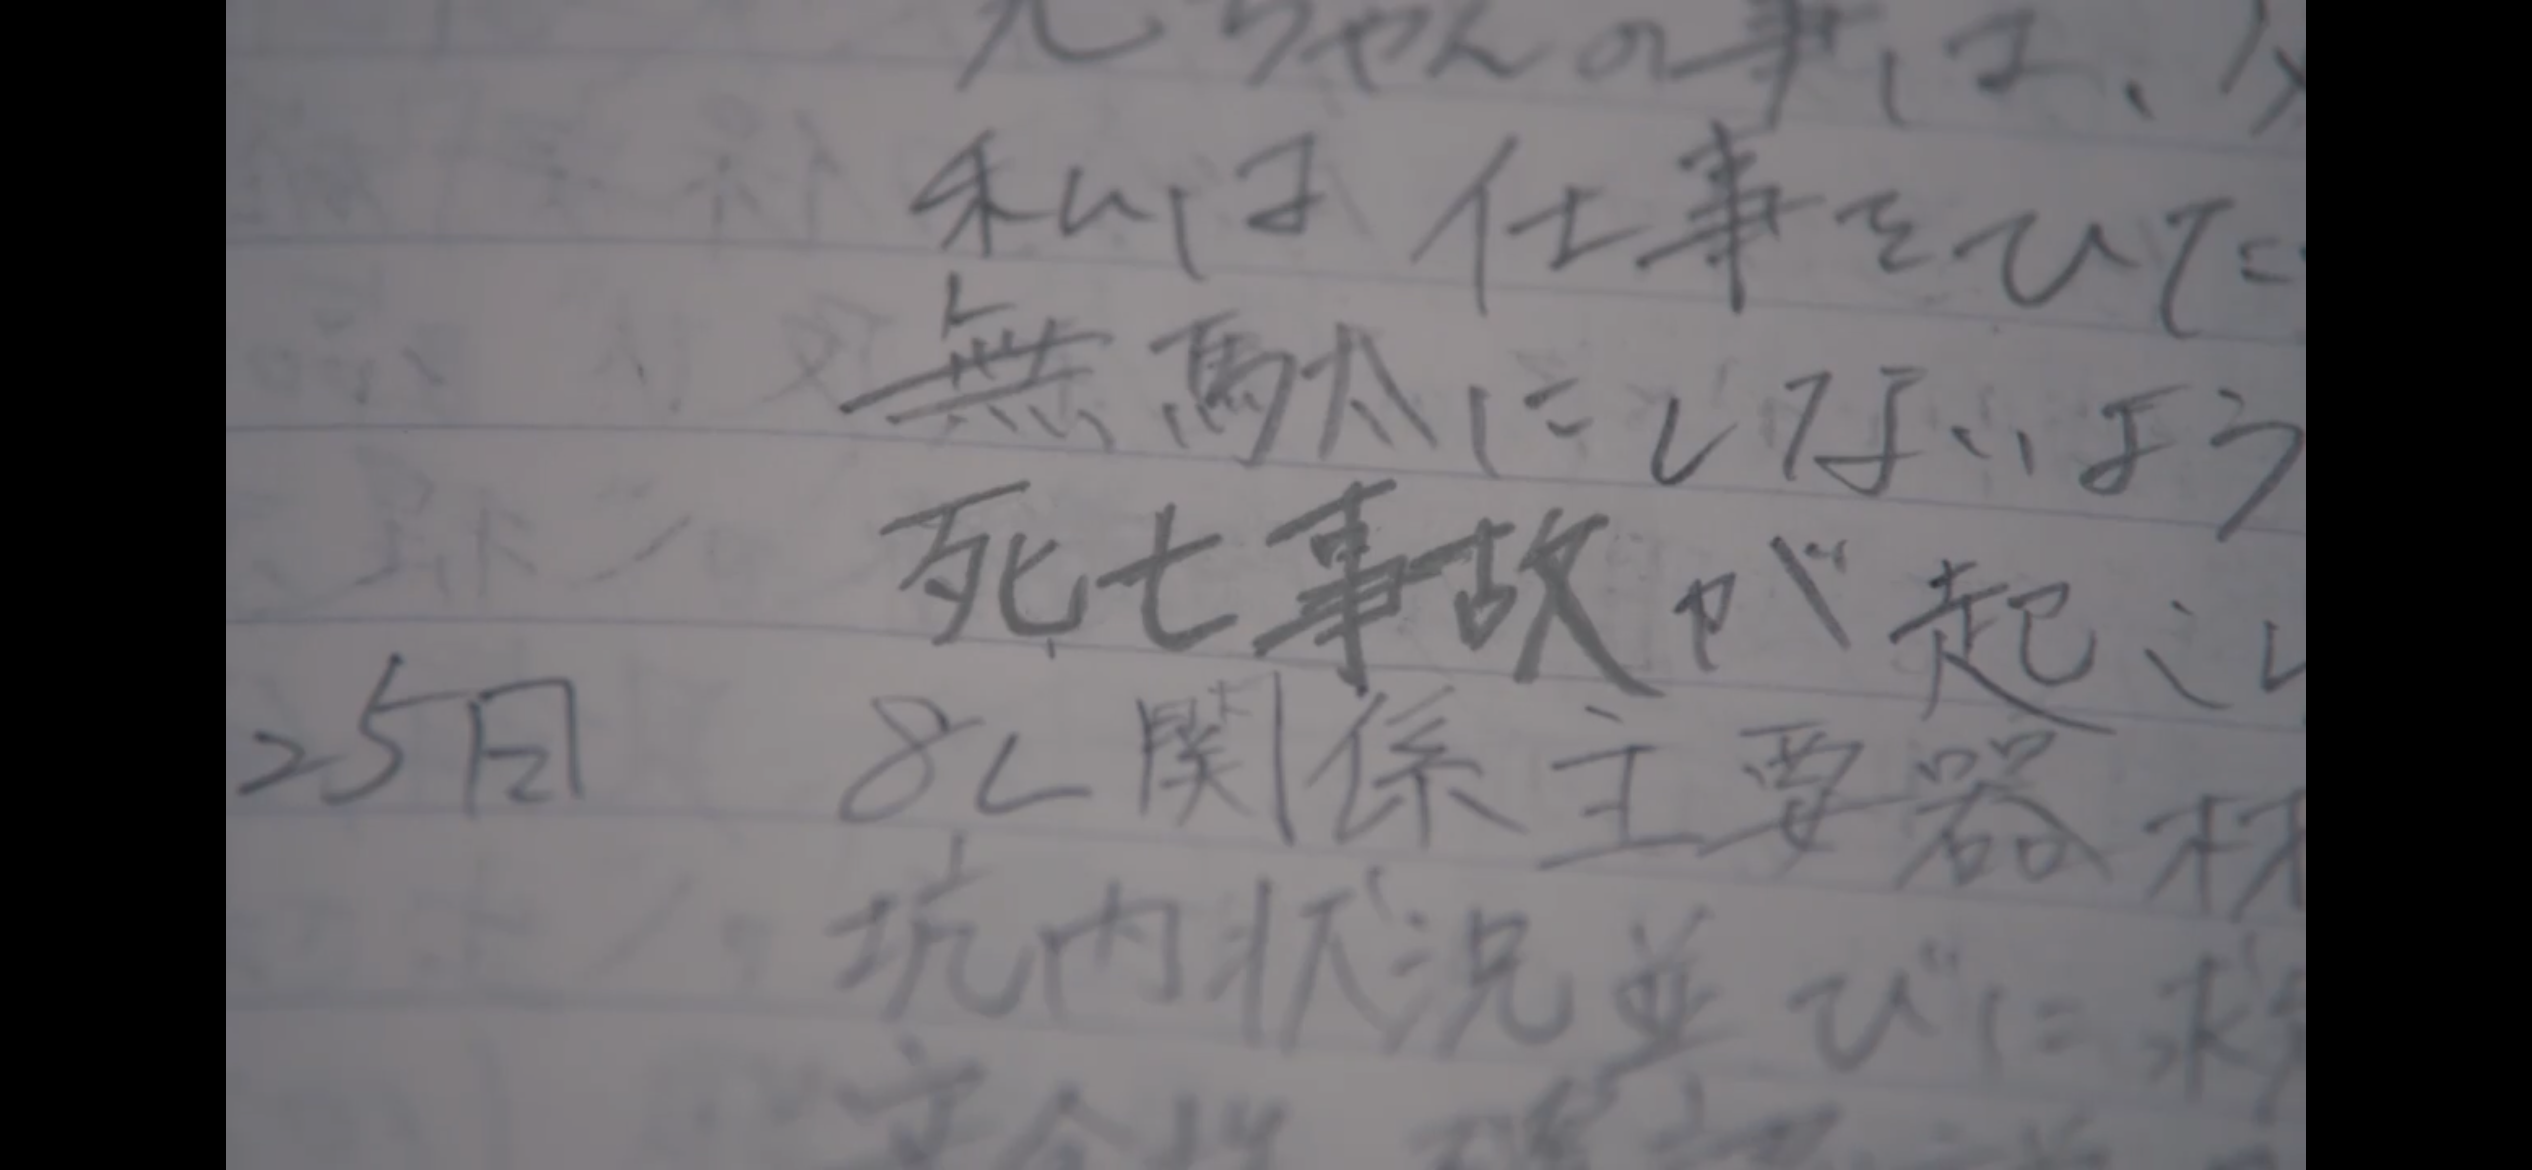 ちゃんの事は、
私は仕事をひた
無駄にしないよう
死亡事故が起こし
25日 8L関係主要器材
坑内状況並びに
安全性